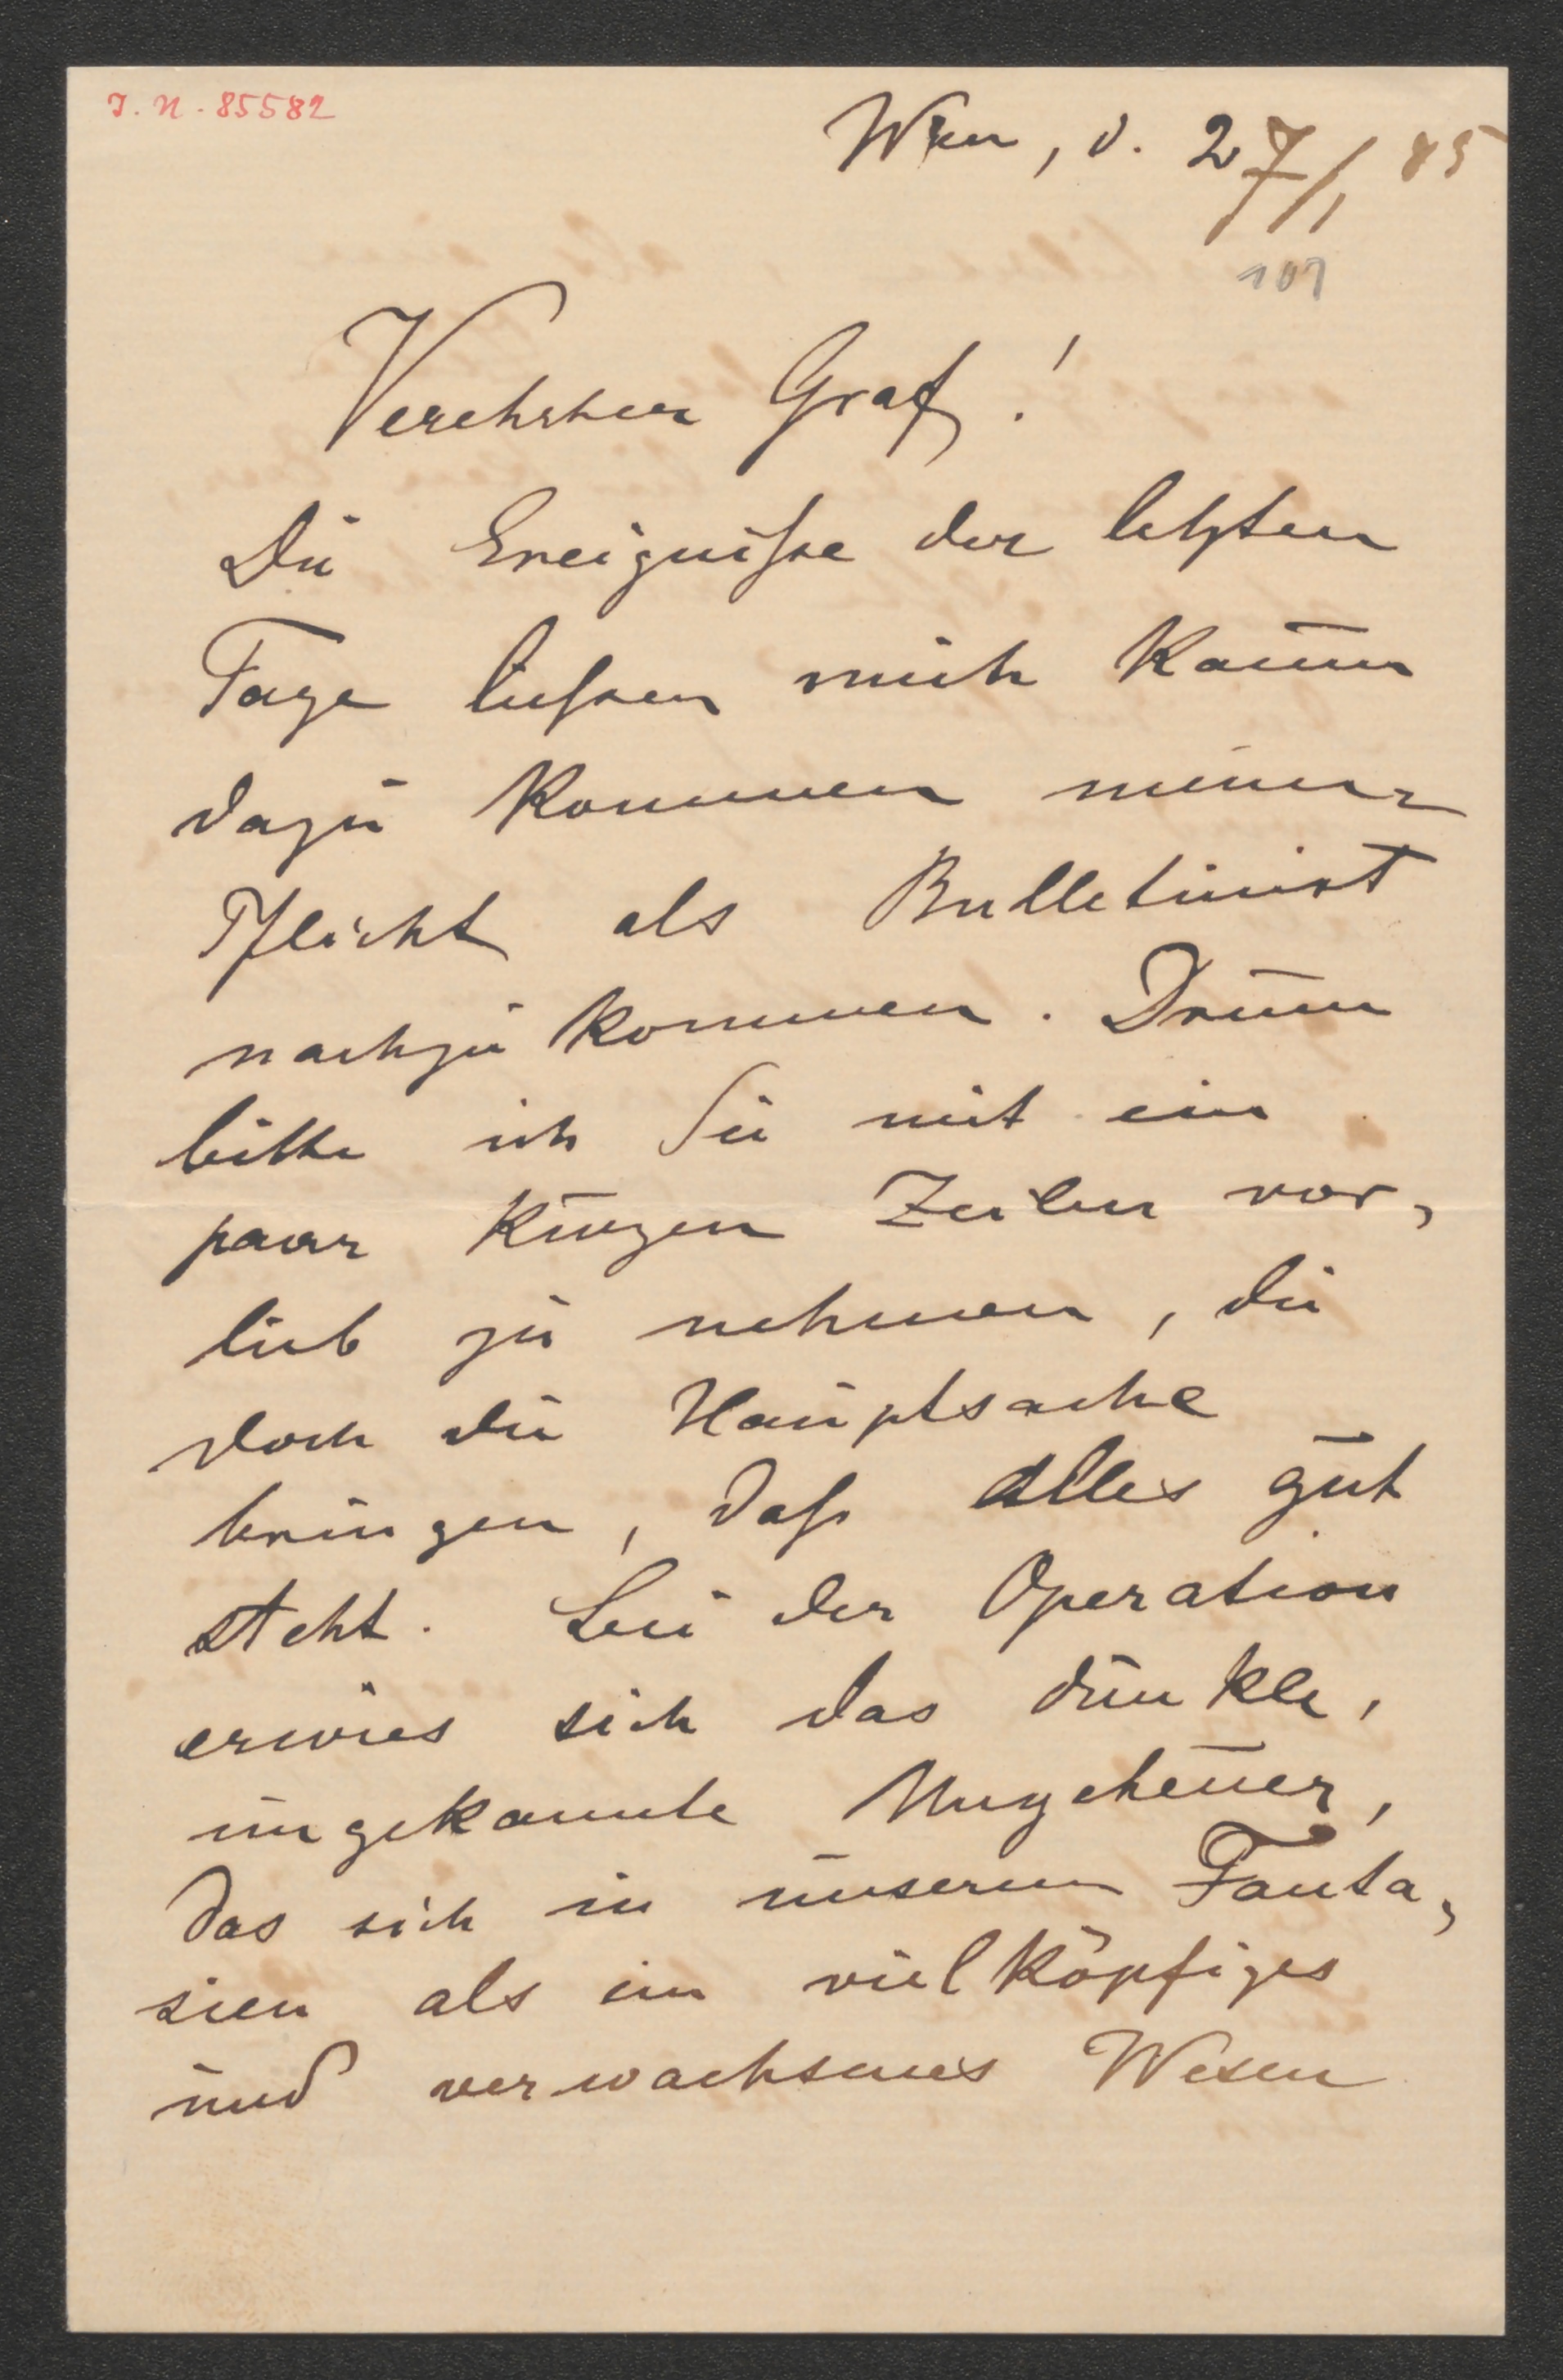 I. N. 85582
Wien, d. 27/1 85
107
Verehrter Graf!
Die Ereigniße der letzten
Tage ließen mich kaum
dazu kommen meiner
Pflicht als Bulletinist
nachzukommen. Drum
bitte ich Sie mit ein
paar kurzen Zeilen vor-
lieb zu nehmen, die
doch die Hauptsache
bringen, daß alles gut
steht. Bei der Operation
erwies sich das dunkle,
ungekannte Ungeheuer,
das sich in unseren Fanta-
sien als ein vielköpfiges
und verwachsenes Wesen